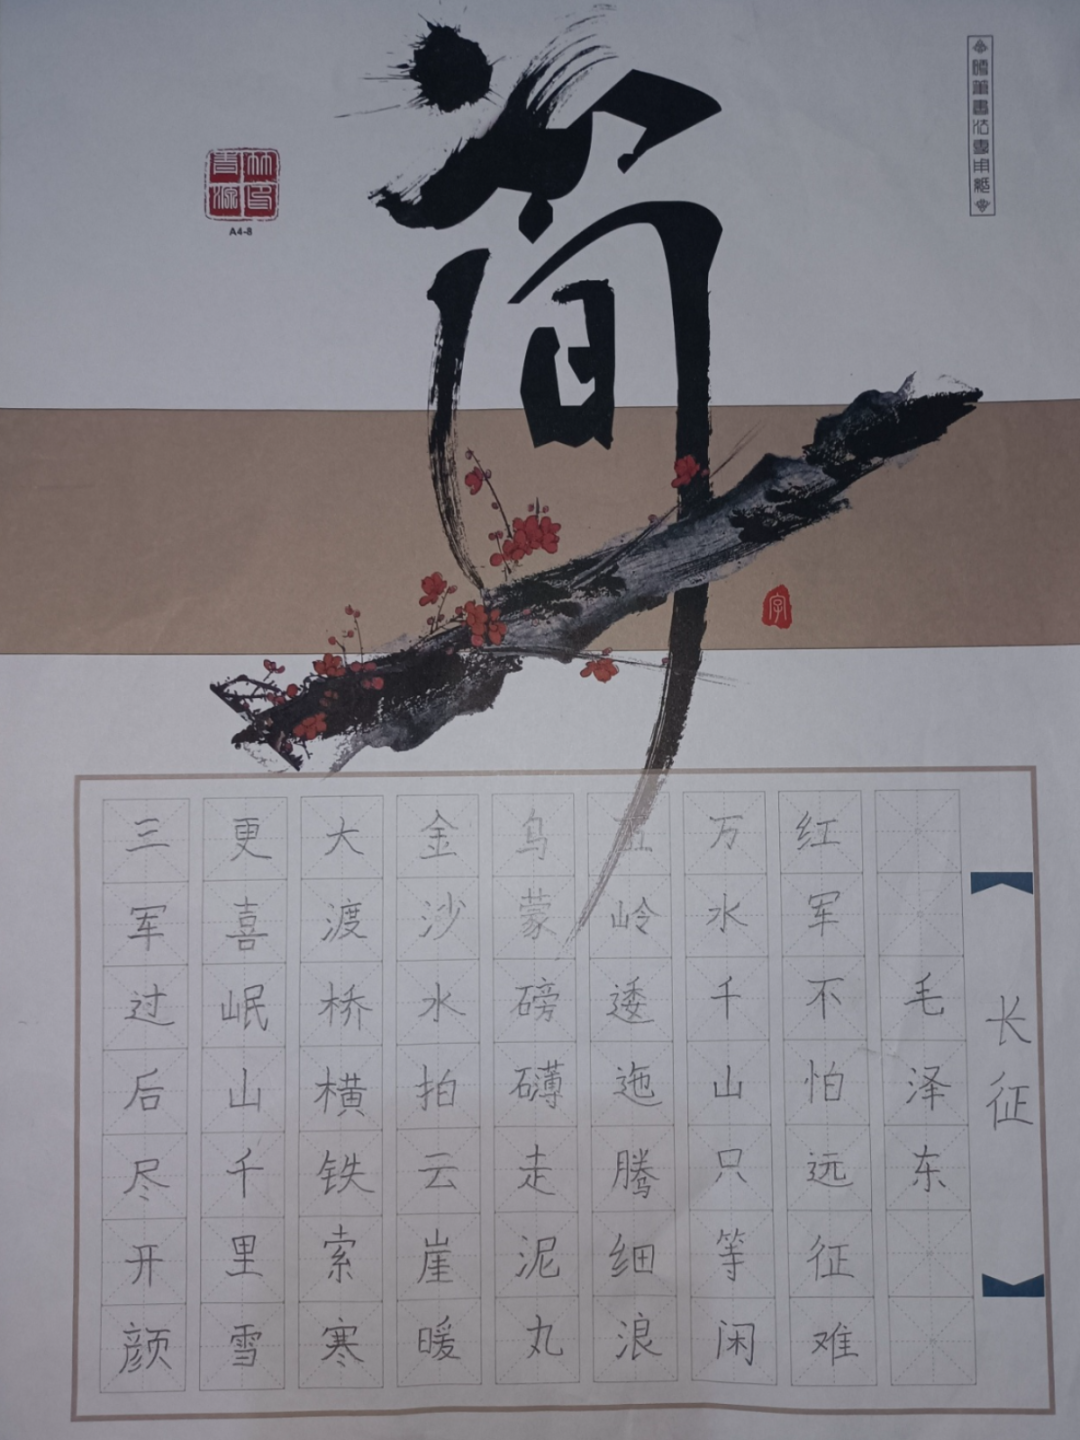 简
硬笔书法专用纸
A4-8
字
长征
毛泽东
红军不怕远征难
万水千山只等闲
五岭逶迤腾细浪
乌蒙磅礴走泥丸
金沙水拍云崖暖
大渡桥横铁索寒
更喜岷山千里雪
三军过后尽开颜